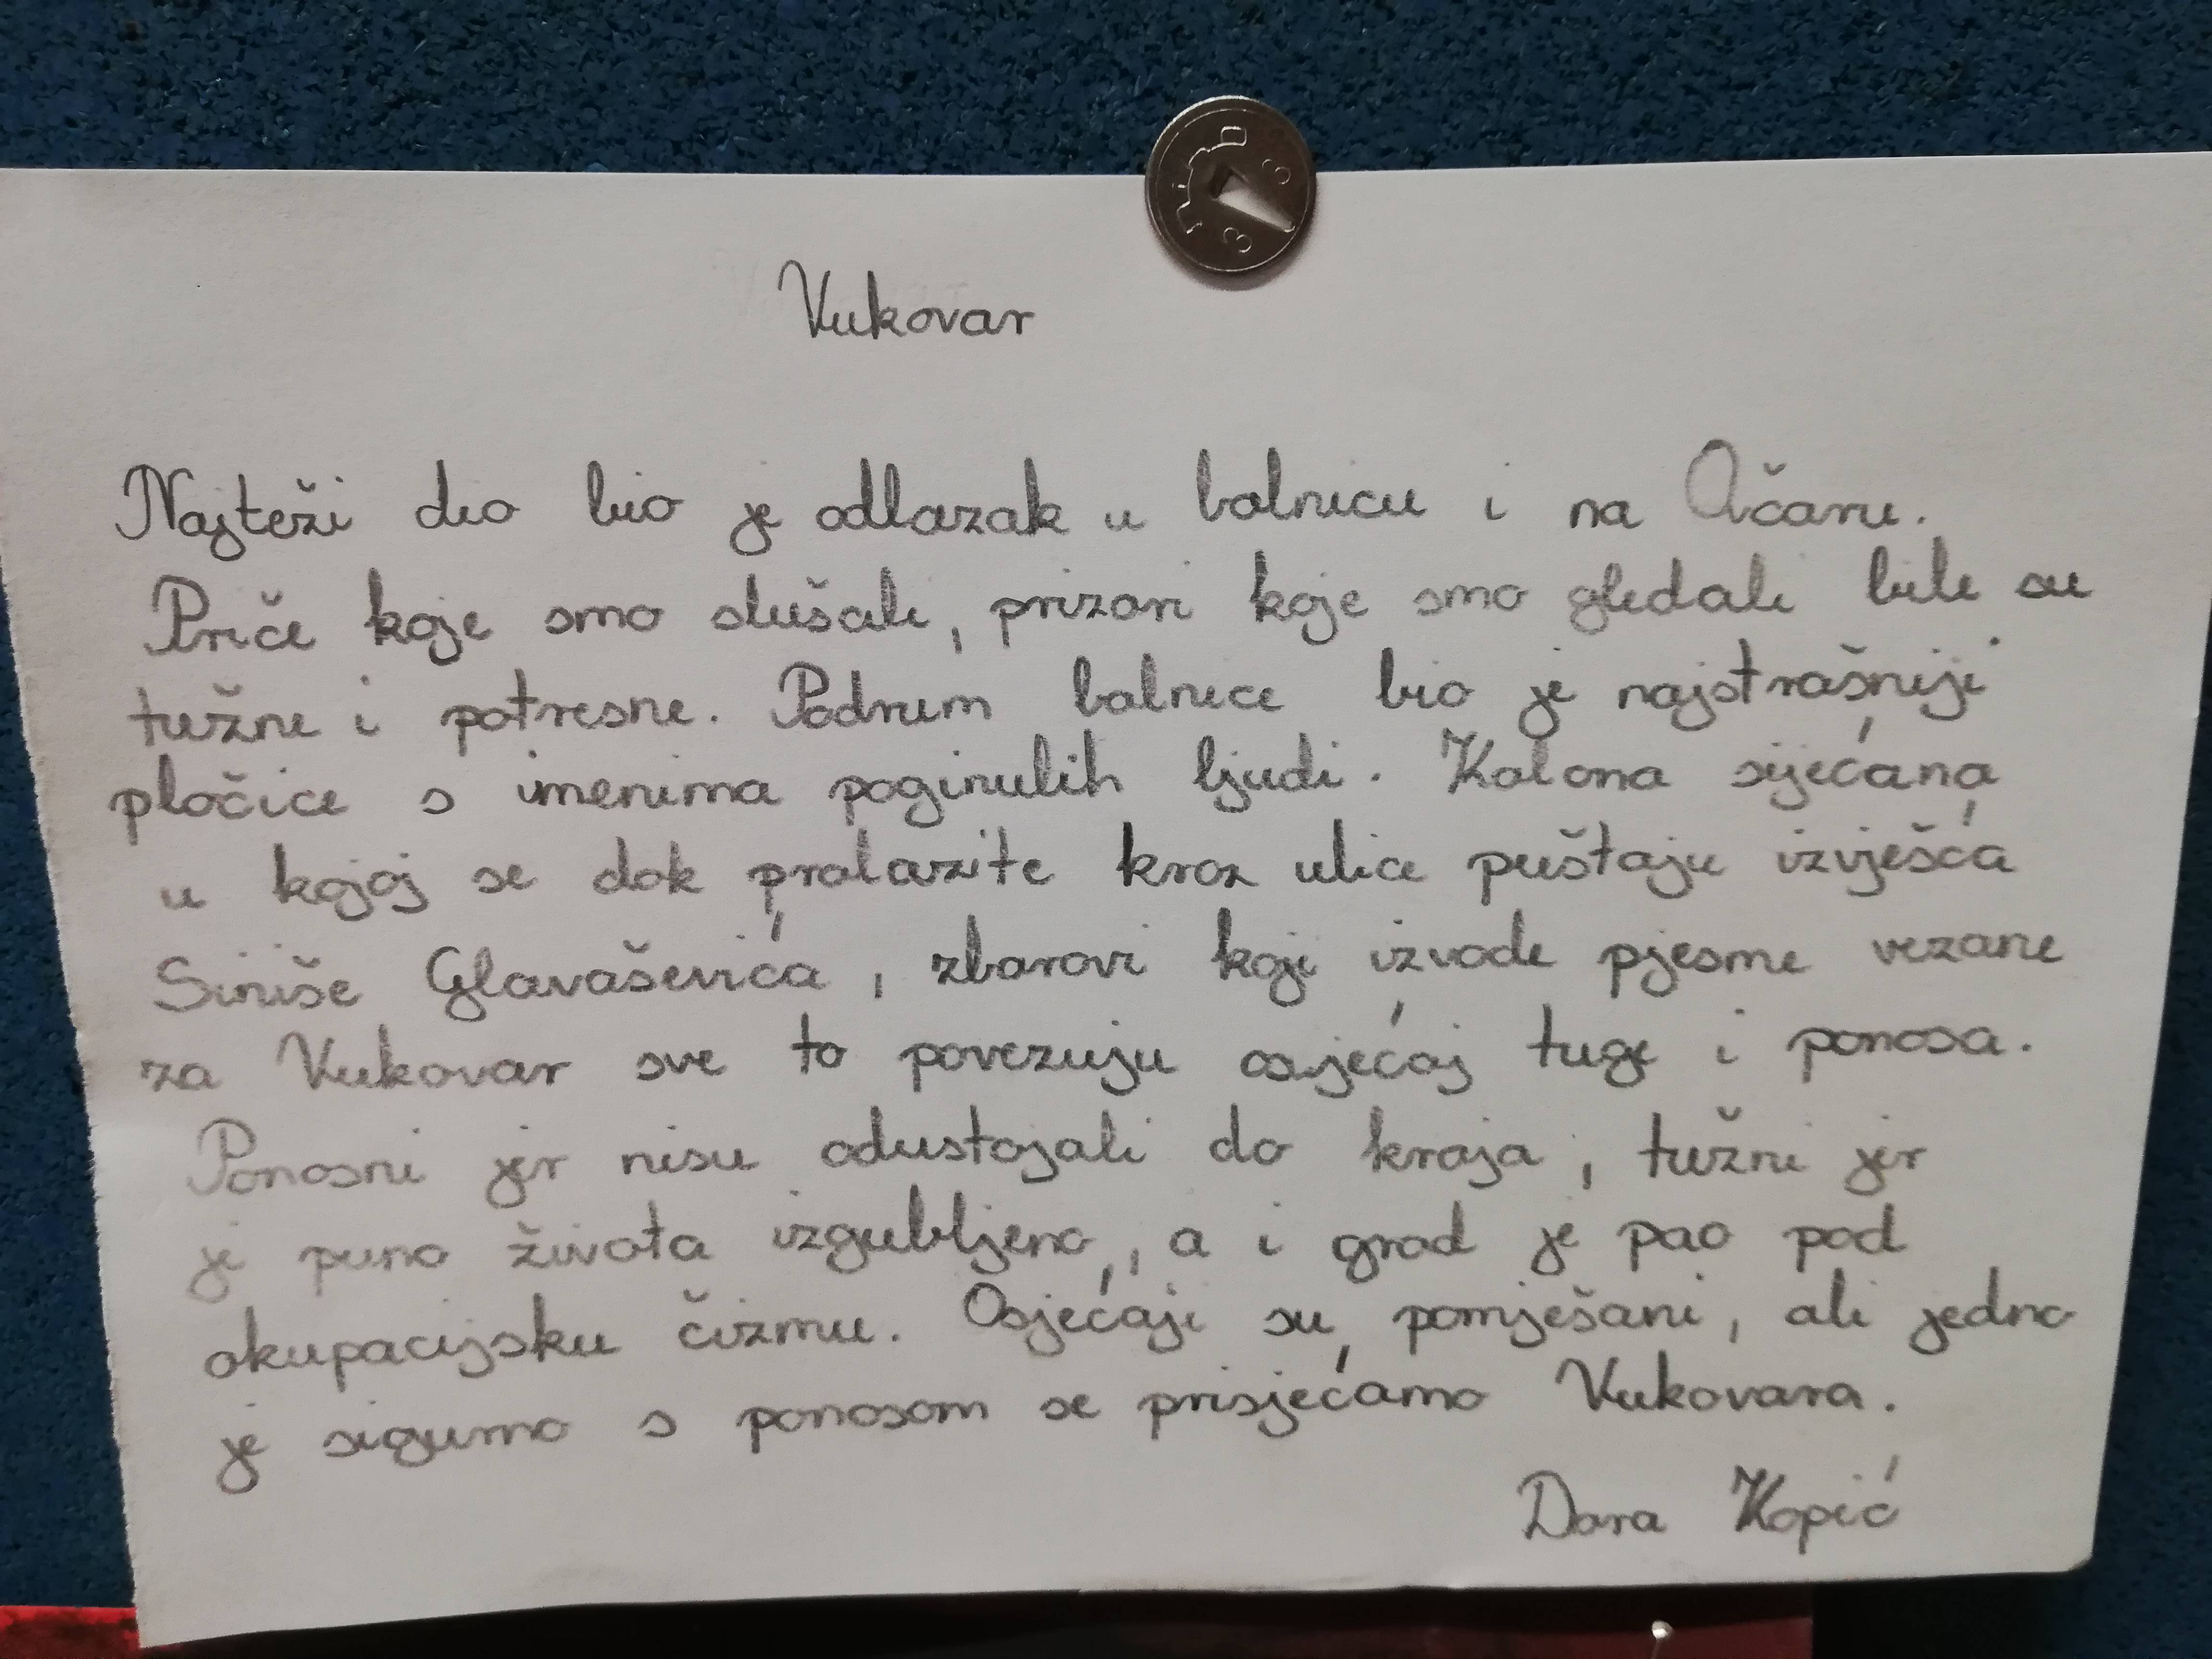 Vukovar
Najteži dio bio je odlazak u bolnicu i na Očaru.
Priče koje smo slušali, prizori koje smo gledali bile su
tužne i potresne. Podrum bolnice bio je najstrašniji
pločice s imenima poginulih ljudi. Kolona sijećana
u kojoj se dok prolazite kroz ulice puštaju izvješća
Siniše Glavaševića, zborovi koji izvode pjesme vezane
za Vukovar sve to povezuju osjećaj tuge i ponosa.
Ponosni jer nisu odustojali do kraja, tužni jer
je puno života izgubljeno, a i grad je pao pod
okupacijsku čizmu. Osjećaji su pomješani, ali jedno
je sigurno s ponosom se prisjećamo Vukovara.
Dora Kopić